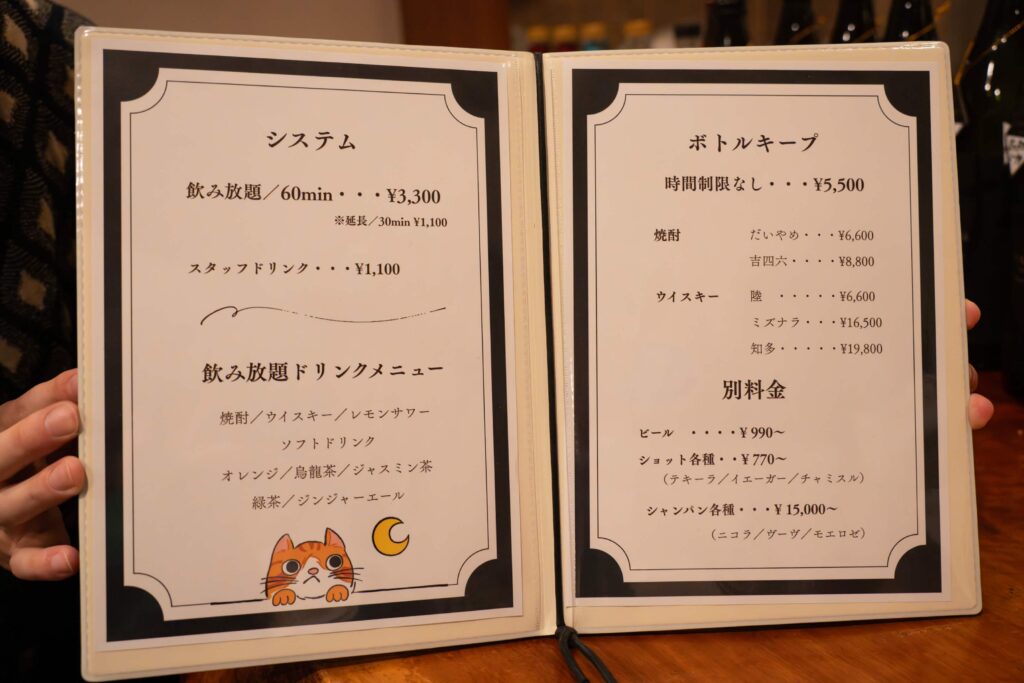 システム
飲み放題／60min・・・¥3,300
※延長／30min ¥1,100
スタッフドリンク・・・¥1,100
飲み放題ドリンクメニュー
焼酎／ウイスキー／レモンサワー
ソフトドリンク
オレンジ／烏龍茶／ジャスミン茶
緑茶／ジンジャーエール
ボトルキープ
時間制限なし・・・¥5,500
焼酎 だいやめ・・・¥6,600
吉四六・・・・¥8,800
ウイスキー 陸 ・・・・・¥6,600
ミズナラ・・・¥16,500
知多・・・・・¥19,800
別料金
ビール ・・・・¥ 990〜
ショット各種・・¥ 770〜
（テキーラ／イエーガー／チャミスル）
シャンパン各種・・・¥ 15,000〜
（ニコラ／ヴーヴ／モエロゼ）